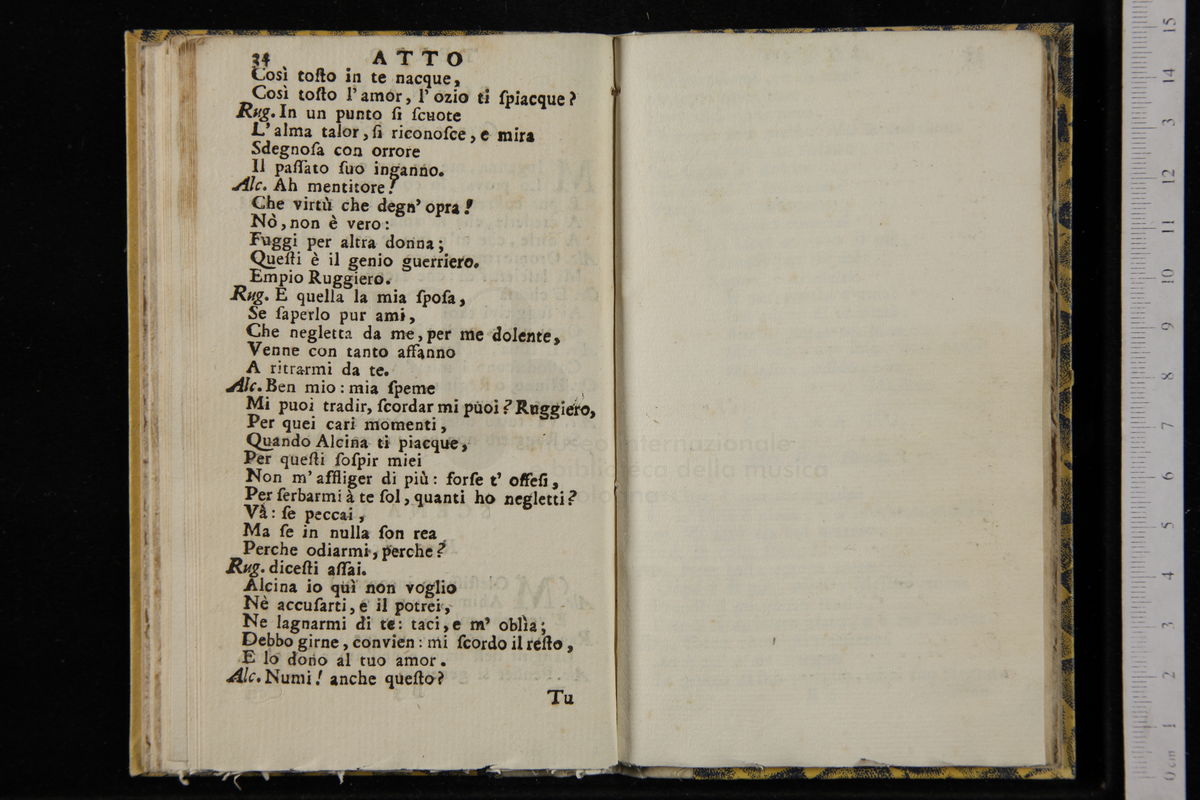 34 ATTO
Così toſto in te nacque,
Così toſto l'amor, l'ozio ti ſpiacque?
Rug. In un punto ſi ſcuote
L'alma talor, ſi riconoſce, e mira
Sdegnoſa con orrore
Il paſſato ſuo inganno.
Alc. Ah mentitore!
Che virtù che degn'opra!
Nò, non è vero:
Fuggi per altra donna;
Queſti è il genio guerriero.
Empio Ruggiero.
Rug. E quella la mia ſpoſa,
Se ſaperlo pur ami,
Che negletta da me, per me dolente,
Venne con tanto affanno
A ritrarmi da te.
Alc. Ben mio: mia ſpeme
Mi puoi tradir, ſcordar mi puoi? Ruggiero,
Per quei cari momenti,
Quando Alcina ti piacque,
Per queſti ſoſpir miei
Non m'affliger di più: forſe t'offeſi,
Per ſerbarmi à te ſol, quanti ho negletti?
Và: ſe peccai,
Ma ſe in nulla ſon rea
Perche odiarmi, perche?
Rug. diceſti aſſai.
Alcina io quì non voglio
Nè accuſarti, e il potrei,
Ne lagnarmi di te: taci, e m'oblìa;
Debbo girne, convien: mi ſcordo il reſto,
E lo dono al tuo amor.
Alc. Numi! anche queſto?
Tu
museo internazionale
e biblioteca della musica
bologna
0 cm 1 2 3 4 5 6 7 8 9 10 11 12 3 14 15